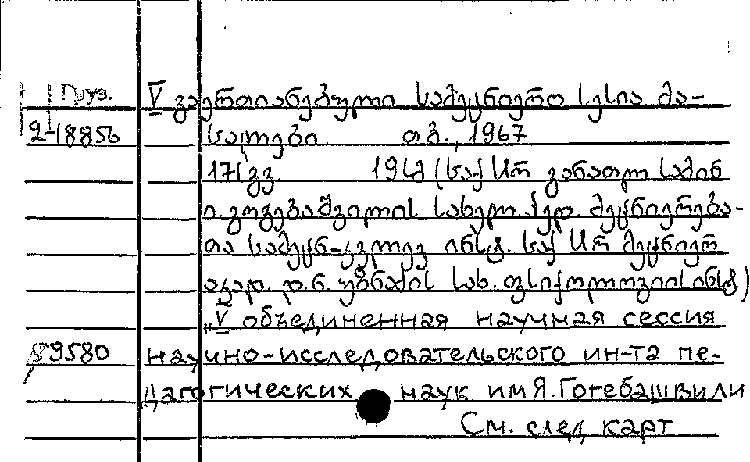 Груз. V გაერთიანებული სამეცნიერო სესია მა-
2-18856 სალები თბ., 1967
171 გვ. 1967 (საქ სსრ განათლ სამინ
ი. გოგებაშვილის სახელ. პედ. მეცნიერება-
თა სამეცნ-კვლევ ინსტ. საქ სსრ მეცნიერ
აკად. დ. ნ. უზნაძის სახ. ფსიქოლოგიის ინსტ)
„V объединенная научная сессия
89580 научно-исследовательского ин-та пе-
дагогических наук им Я. Гогебашвили
См. след карт